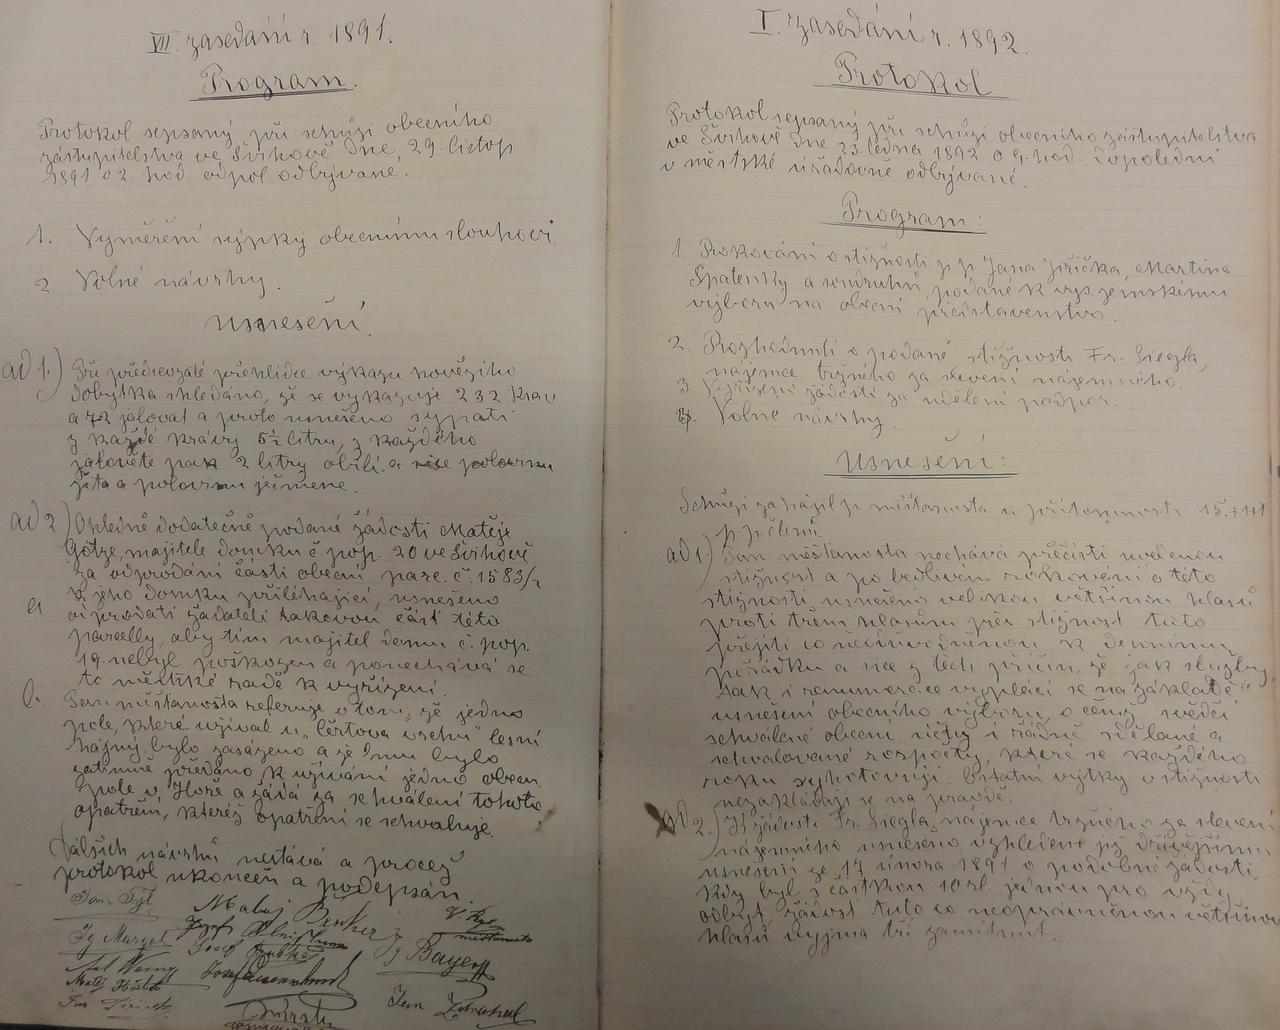 VII. zasedání r. 1891.
Program.
Protokol sepsaný při schůzi obecního
zástupitelstva ve Švihově dne, 29. listop.
1891 o 2. hod. odpol. odbývané.
1. Vyměření sýpky obecnímu slouhovi.
2 Volné návrhy.
Usnesení.
ad 1.) Při předsevzaté přehlídce výkazu hovězího
dobytka shledáno, že se vykazuje 232 krav
a 72 jalovat a proto usnešeno sypati
z každé krávy 5½ litru, z každého
jalověte pak 2 litry obilí a sice polovinu
žita a polovinu ječmene.
ad 2) Ohledně dodatečně podané žádosti Matěje
Götze, majitele domku č pop. 20 ve Švihově
za odprodání části obecní parc. č. 1583/2
k jeho domku přiléhající, usnešeno
a odprodati žadateli takovou část této
parcelly, aby tím majitel domu č. pop.
19. nebyl poškozen a ponechává se
to městské radě k vyřízení.
b. Pan měšťanosta referuje o tom, že jedno
pole, které užíval u „čertova vrchu" lesní
hajný bylo zasázeno a že mu bylo
zatímně předáno k užívání jedno obecní
pole v Hoře a žádá za schválení tohoto
opatření, kteréž opatření se schvaluje.
Dalších návrhů nestává a pročež
protokol ukončen a podepsán.
Jan Tyl Matěj Benker
Ig Margot Josef
měšťanosta
Josef Bayer
Matěj
Jan
Jan
I. zasedání r. 1892.
Protokol
Protokol sepsaný při schůzi obecního zástupitelstva
ve Švihově dne 23. ledna 1892 o 9. hod. dopolední
v městské úřadovně odbývané.
Program:
1. Rokování o stížnosti p. p. Jana Jiřička, Martina
Špatenky a soudruhů, podané k vys. zemskému
výboru na obecní představenstvo.
2. Rozhodnutí o podané stížnosti Fr. Siegla,
nájemce tržného za slevení nájemného.
3 Vyřízení žádostí za udělení podpor.
4. Volné návrhy.
Usnesení:
Schůzi zahájil p. měšťanosta u přítomnosti 15.+1+1
p. p. členů.
ad 1) Pan měšťanosta nechává přečísti uvedenou
stížnost a po bedlivém rokování o této
stížnosti usnešeno velikou většinou hlasů
proti třem hlasům přes stížnost tuto
přejíti co neodůvodněnou k dennímu
pořádku a sice z těch příčin, že jak služby,
tak i remunerace vyplácí se na základě
usnešení obecního výboru, o čemž svědčí
schválené obecní účty i řádně sdělané a
schvalované rozpočty, které se každého
roku vyhotovují. Ostatní výtky v stížnosti
nezakládají se na pravdě.
ad 2.) K žádosti Fr. Siegla, nájemce tržného za slevení
nájemného usnešeno vzhledem již dřívějšímu
usnešení ze 17 února 1891 o podobné žádosti,
kdy byl s částkou 10 zl. jednou pro vždy
odbyt, žádost tuto co neoprávněnou většinou
hlasů vyjma tří zamítnut.